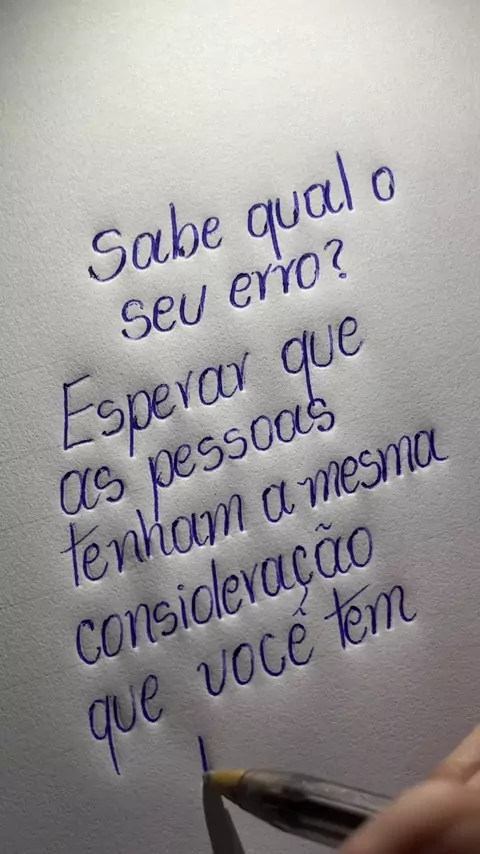 Sabe qual o
seu erro?
Esperar que
as pessoas
tenham a mesma
consideração
que você tem